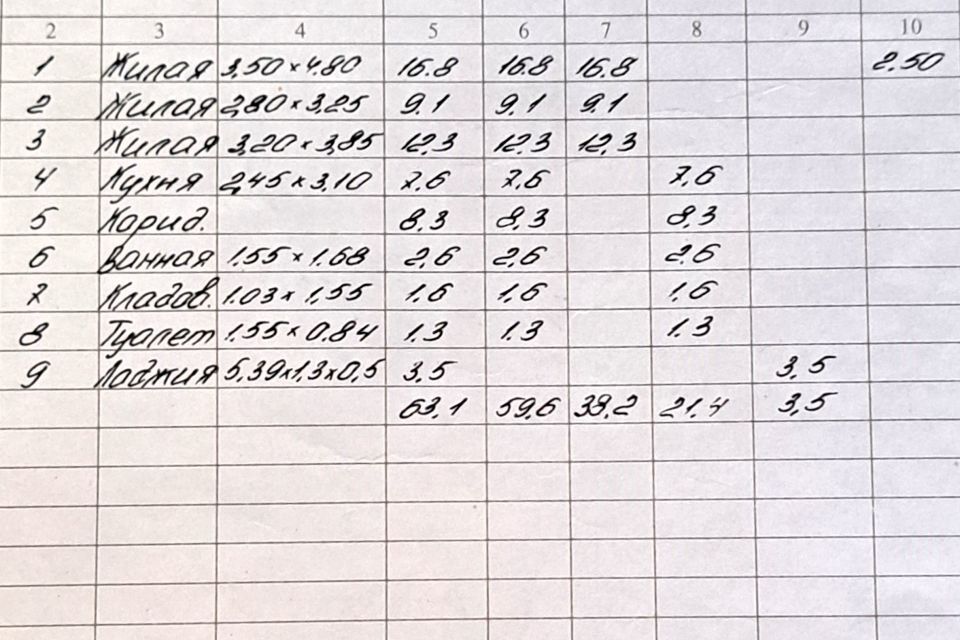 2 3 4 5 6 7 8 9 10
1 Жилая 3,50×4.80 16.8 16.8 16,8 2.50
2 Жилая 2,80×3,25 9.1 9,1 9,1
3 Жилая 3,20×3,85 12,3 12,3 12,3
4 Кухня 2,45×3,10 7.6 7,6 7,6
5 Корид. 8.3 8,3 8,3
6 Ванная 1.55×1.68 2,6 2,6 2,6
7 Кладов. 1.03×1,55 1,6 1,6 1,6
8 Туалет 1.55×0.84 1.3 1.3 1.3
9 Лоджия 5,39×1,3×0,5 3.5 3,5
63,1 59,6 38,2 21,4 3,5